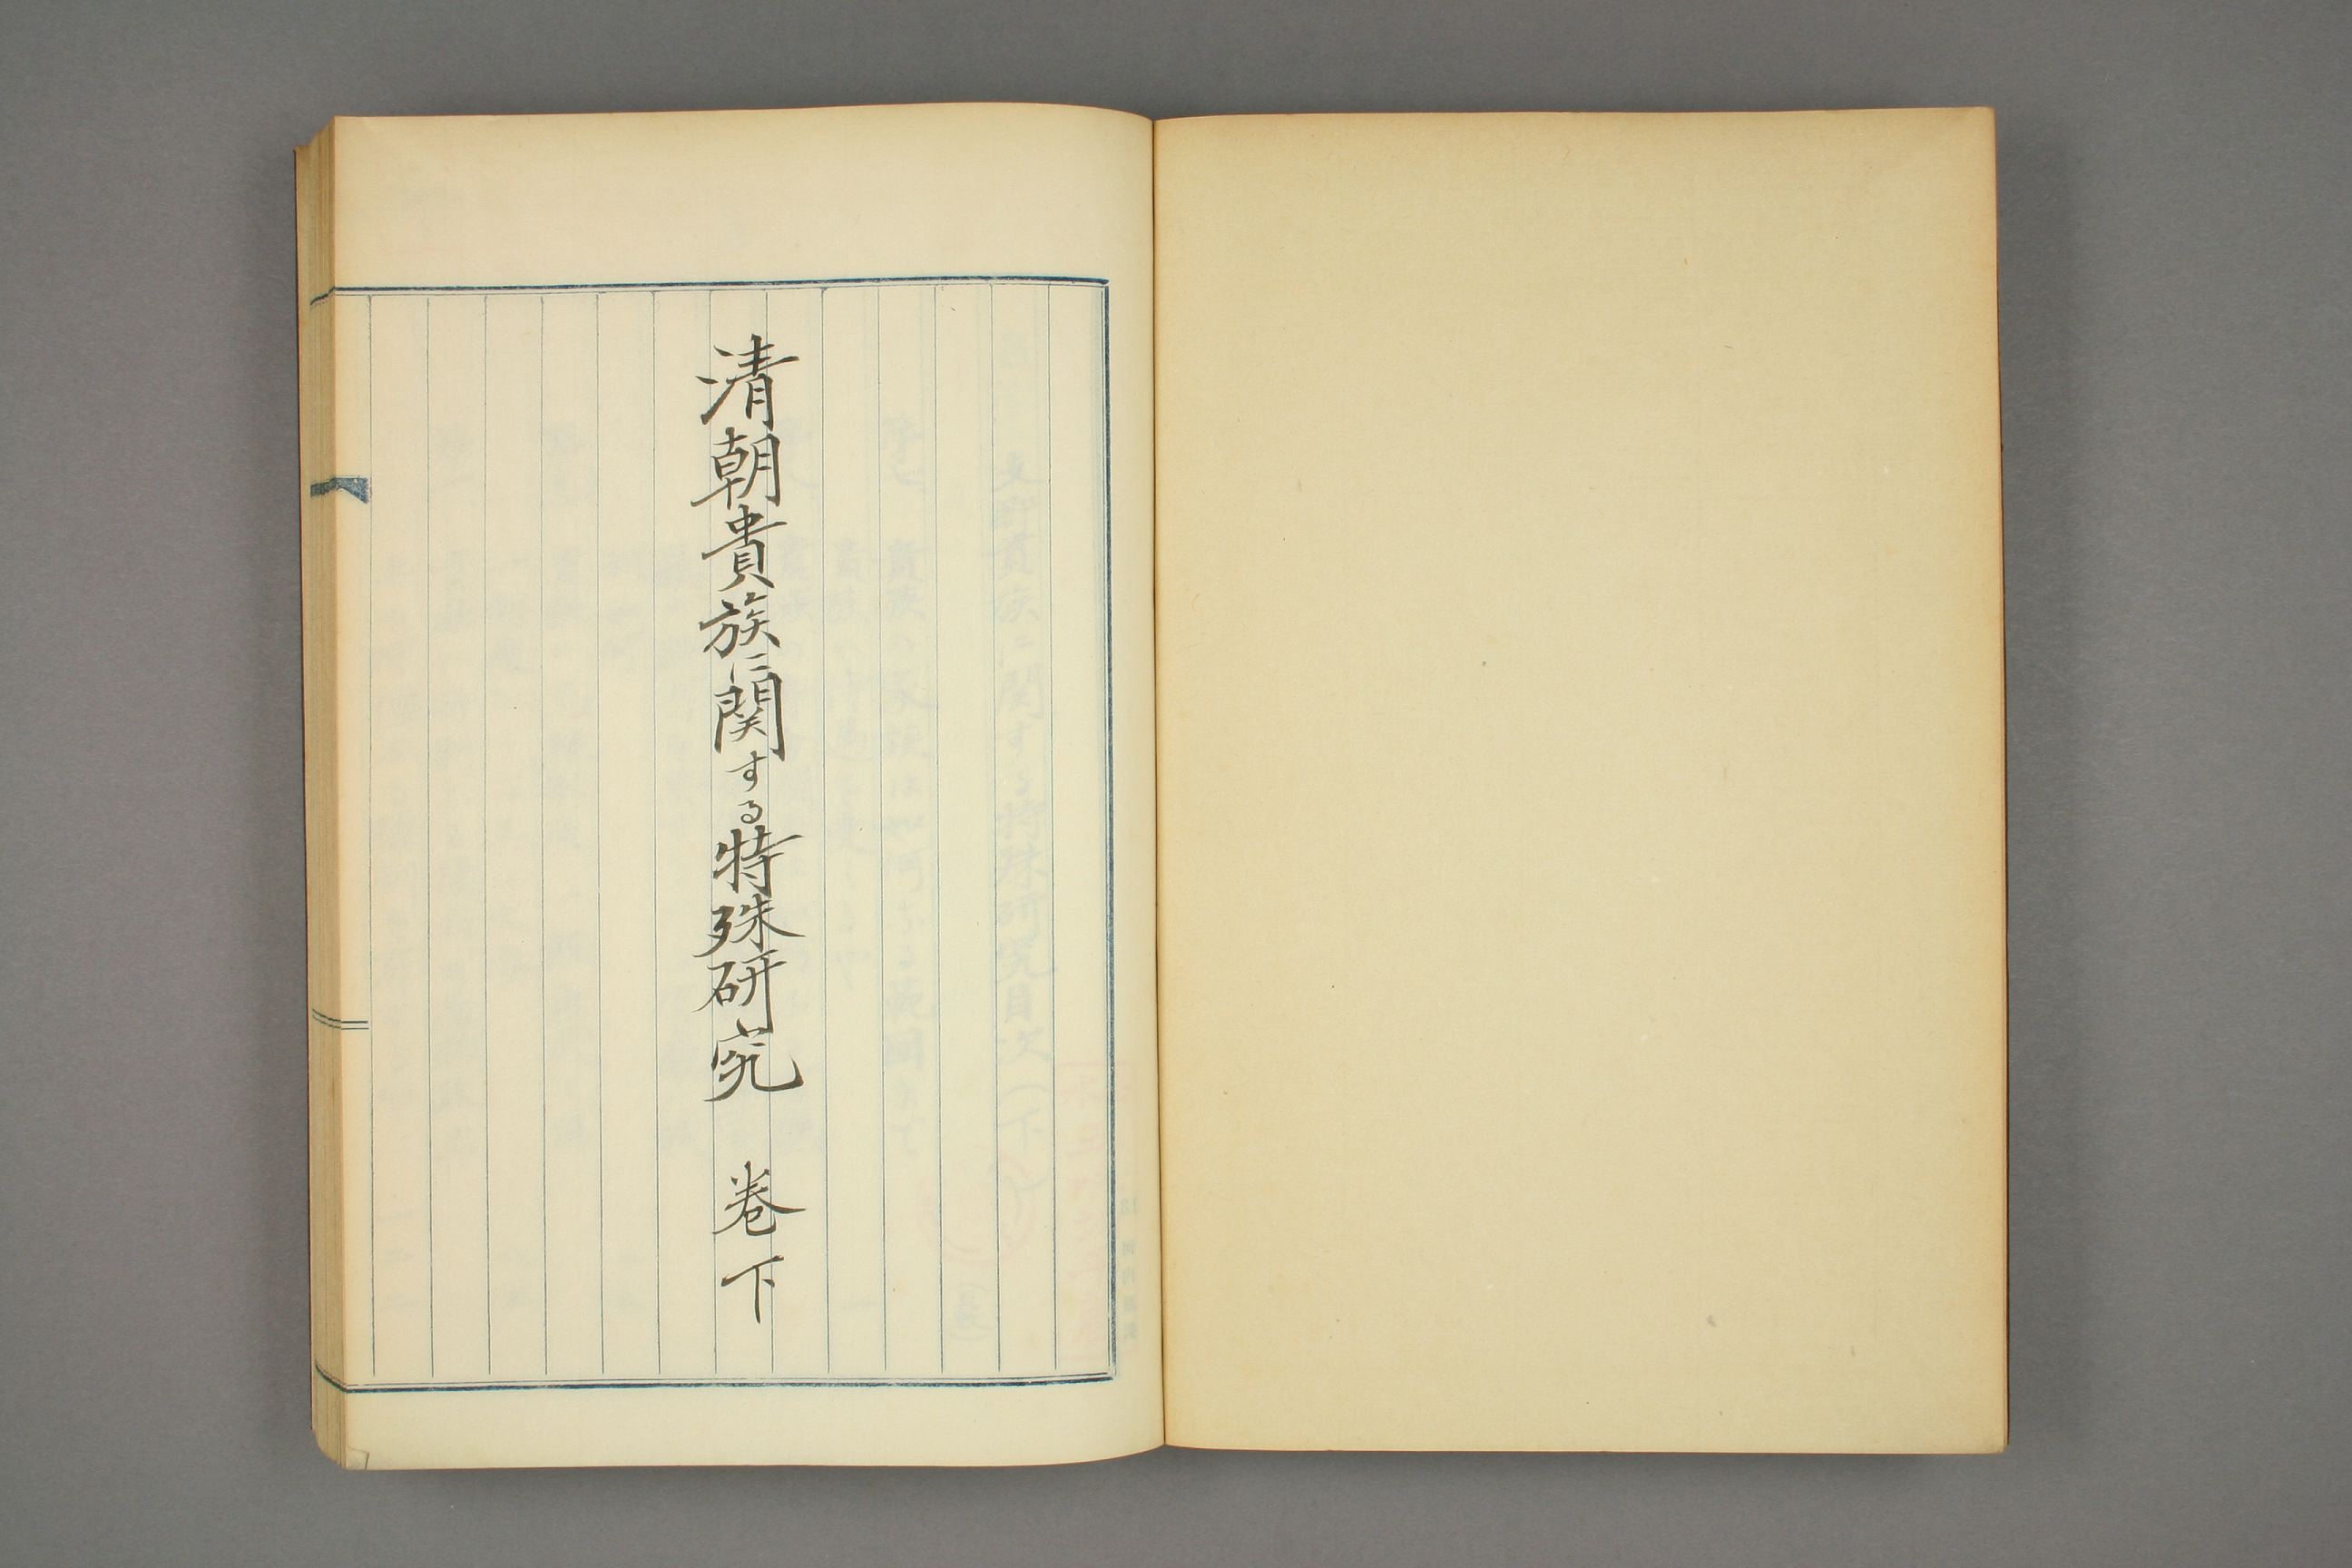 清朝貴族に関する特殊研究　巻下